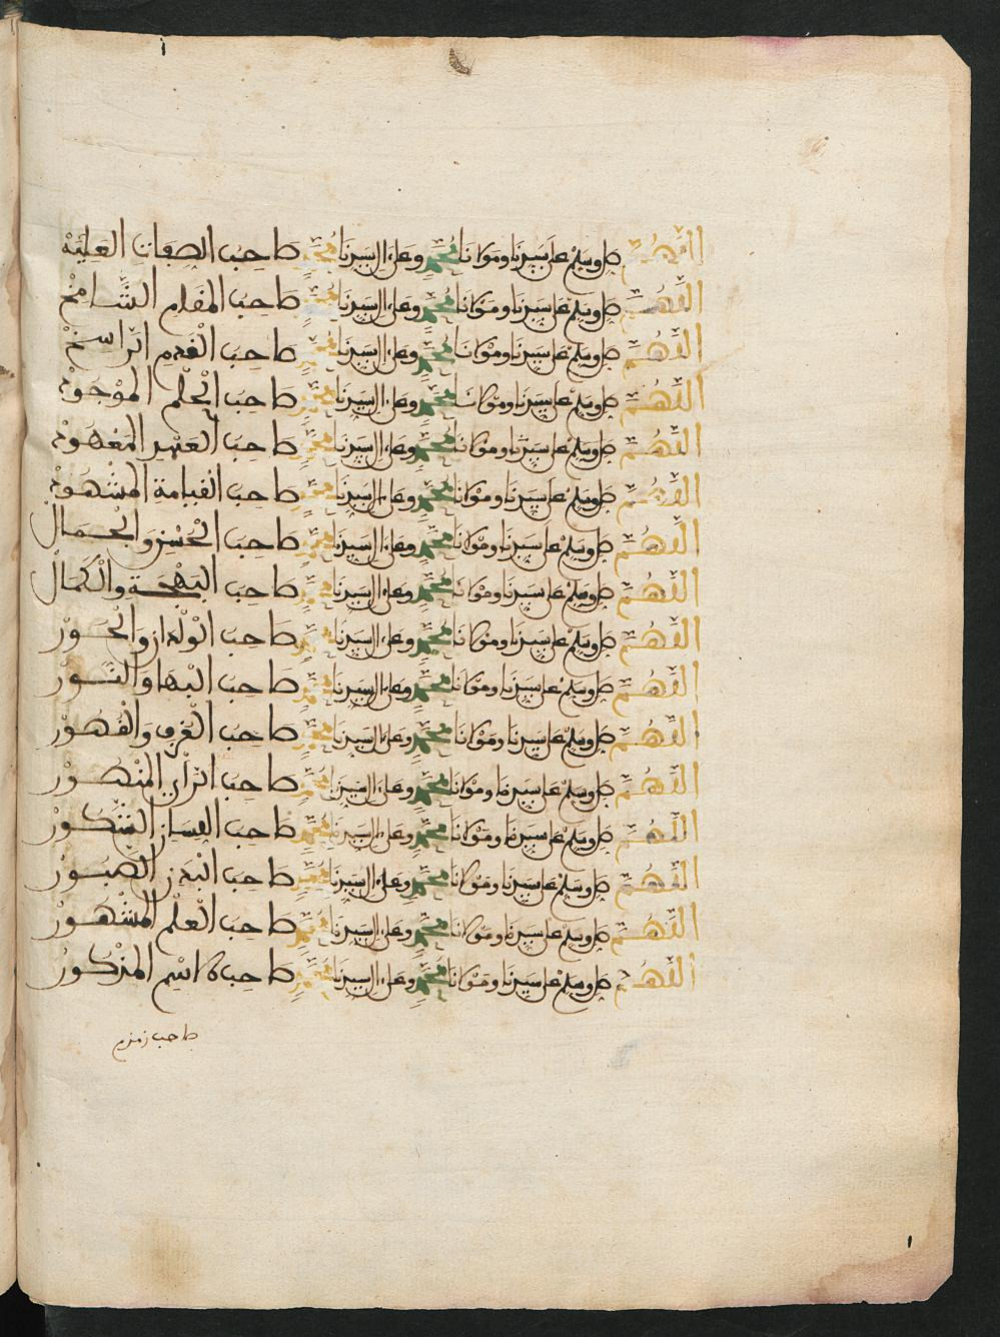 اللهم صل وسلم على سيدنا ومولانا محمد وعلى ءال سيدنا محمد صاحب الصفات العلية
اللهم صل وسلم على سيدنا ومولانا محمد وعلى ءال سيدنا محمد صاحب المقام الشامخ
اللهم صل وسلم على سيدنا ومولانا محمد وعلى ءال سيدنا محمد صاحب القدم الراسخ
اللهم صل وسلم على سيدنا ومولانا محمد وعلى ءال سيدنا محمد صاحب الحلم الموجود
اللهم صل وسلم على سيدنا ومولانا محمد وعلى ءال سيدنا محمد صاحب العهد المعهود
اللهم صل وسلم على سيدنا ومولانا محمد وعلى ءال سيدنا محمد صاحب القيامة المشهود
اللهم صل وسلم على سيدنا ومولانا محمد وعلى ءال سيدنا محمد صاحب الحسن والجمال
اللهم صل وسلم على سيدنا ومولانا محمد وعلى ءال سيدنا محمد صاحب البهجة والكمال
اللهم صل وسلم على سيدنا ومولانا محمد وعلى ءال سيدنا محمد صاحب الولدان والحور
اللهم صل وسلم على سيدنا ومولانا محمد وعلى ءال سيدنا محمد صاحب البها والنور
اللهم صل وسلم على سيدنا ومولانا محمد وعلى ءال سيدنا محمد صاحب الغرف والقصور
اللهم صل وسلم على سيدنا ومولانا محمد وعلى ءال سيدنا محمد صاحب المنصور
اللهم صل وسلم على سيدنا ومولانا محمد وعلى ءال سيدنا محمد صاحب اللسان الشكور
اللهم صل وسلم على سيدنا ومولانا محمد وعلى ءال سيدنا محمد صاحب البدن الصبور
اللهم صل وسلم على سيدنا ومولانا محمد وعلى ءال سيدنا محمد صاحب العلم المشهور
اللهم صل وسلم على سيدنا ومولانا محمد وعلى ءال سيدنا محمد صاحب الاسم المذكور
صاحب زمزم